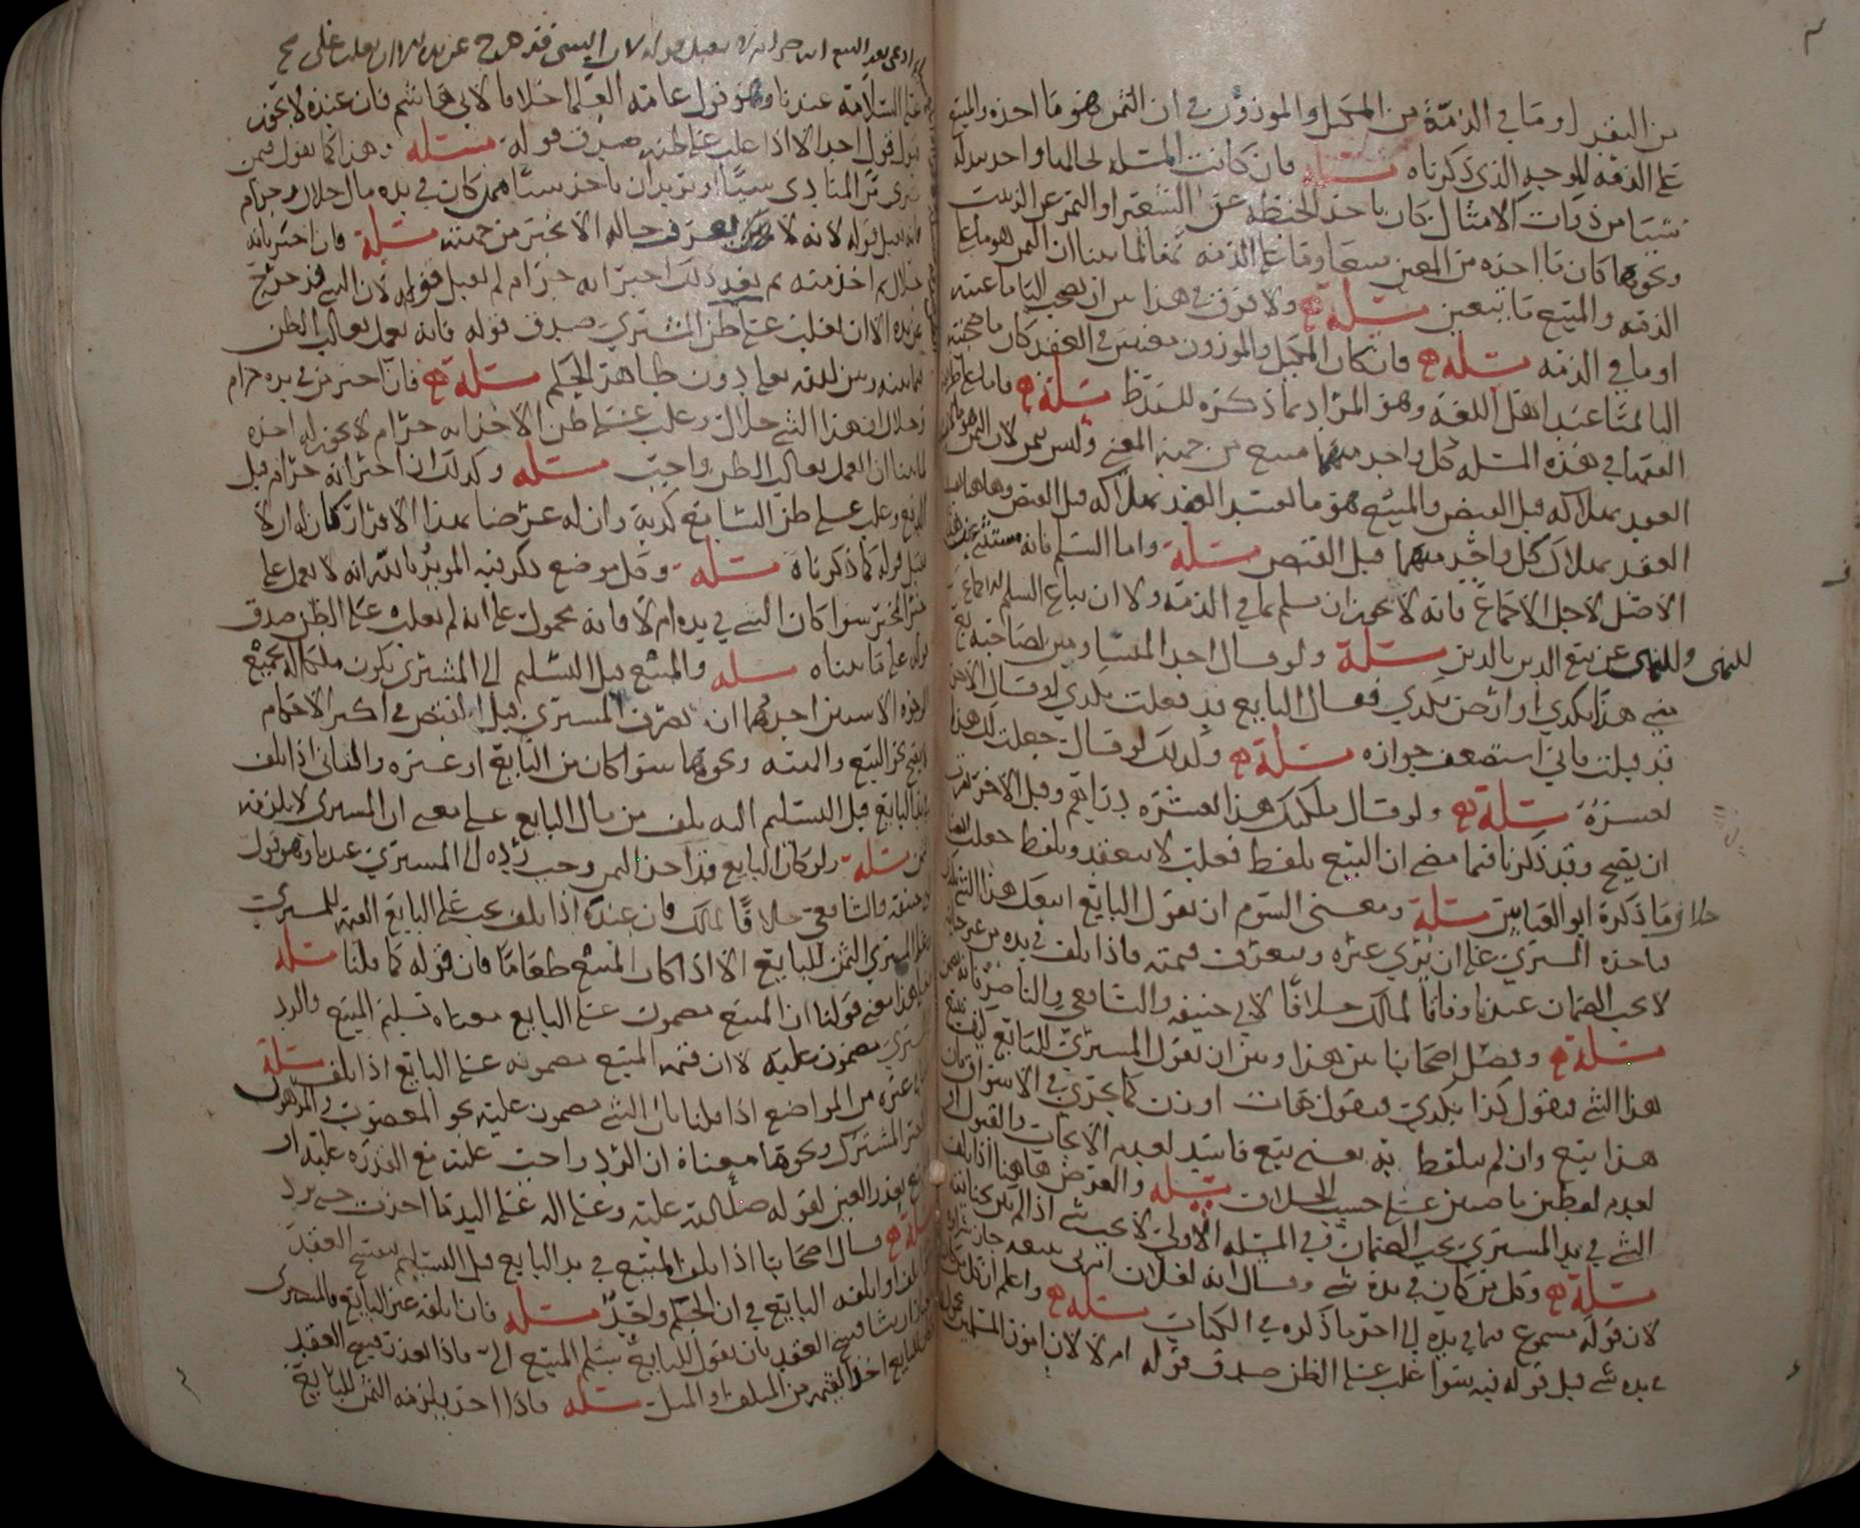 من النقد او ما في الذمة من المكيل والموزون في ان الثمن هو ما احذه والمبيع
على الذمة للوجه الذي ذكرناه مسئله فان كانت المسئله لحالها واحد بدله
شيئا من ذوات الامثال كان ياخذ الحنطة عن الشعير او التمر عن الزبيب
ونحوهما كان ما احذه من المعين مبيعا وما في الذمه ثمنا لما بينا ان الثمن هو ما في
الذمه والمبيع ما يتعين مسئلة ولا فرق في هذا بين ان يصحب الباء ما عينه
او ما في الذمه مسئله فان كان المكيل والموزون معينين في العقد كان ما صحبته
الباء ثمنا عند اهل اللغة وهو المراد بما ذكره مسئلة
الفقها في هذه المسئله كل واحد منهما مبيع من جهة المعنى وليس بثمن لان الثمن هو ما
العقد بهلاكه قبل القبض والمبيع هو ما يفسد العقد بهلاكه قبل القبض وهاهنا
العقد بهلاك كل واحد منهما قبل القبض مسئلة واما السلم فانه مستثنى عن هذا
الاصل لاجل الاجماع فانه لا يجوز ان يسلم بما في الذمة ولا ان يباع السلم
للنهى وللنهى عن بيع الدين بالدين مسئلة ولو قال احد المتساومين لصاحبه بع
مني هذا بكذى او ارض بكذي فقال البايع قد فعلت بكذي او قال الاخر
قد قبلت فاني استضعف جوازه مسئلة وكذلك لو قال جعلت لك هذا
بعشرة مسئلة ولو قال ملكتك هذا بعشرة دراهم وقبل الاخر
ان يصح وقد ذكرنا فيما مضى ان البيع بلفظ فعلت لا ينعقد وبلفظ جعلت
خلاف ما ذكره ابو العباس مسئلة ومعنى السوم ان يقول البايع ابيعك هذا الشي
ياحذه المشتري على ان يري غيره ويتعرف قيمته فاذا تلف في يده من غير جناية
لا يجب الضمان عندنا وفاقا لمالك خلافا لابي حنيفه والشافعي والناصر
مسئلة وفصل اصحابنا بين هذا وبين ان يقول المشتري للبايع كيف تبيع
هذا الشي فيقول كذا بكذي فيقول هات اوزن كما يجري في الاسواق
هذا بيع وان لم يتلفظ به يعني بيع فاسد لعدم الايجاب والقبول او
لعدم لفظين ماضيين على حسب الخلاف مسئله والغرض هاهنا اذا تلف
الشي في يد المشتري يجب الضمان وفي المسئله الاولى لا يجب شي اذا لم يكن جنايه
مسئلة وكل من كان في يده شي وقال انه لفلان امرني ببيعه جاز
لان قوله مسموع فيما في يده الى اخر ما ذكره في الكتاب مسئله واعلم ان كل من
في يده شي قبل قوله فيه سوا غلب على الظن صدق قوله ام لا لان امور المسلمين
ادعى بعد البيع انه حرام لا يقبل قوله لان الشي قد خرج عن يده
على السلامة عندنا وهو قول عامة العلما خلافا لابي هاشم فان عنده لا يجوز
قبول قول احد الا اذا غلب على ظنه صدق قوله مسئله وهذا كما نقول فيمن
يشتري من المنادي شيئا او يريد ان ياخذ شيئا ممن كان في يده مال حلال وحرام
فانه يقبل قوله لانه لا يعرف حاله الا بخبر من جهته مسئلة فان اخبر بانه
حلال ثم اخذ منه ثم بعد ذلك اخبر انه حرام لم يقبل قوله لان الشي قد خرج
من يده الا ان يغلب على ظن المشتري صدق قوله فانه يعمل بغالب الظن
فيما بينه وبين الله تعالى دون ظاهر الحكم مسئلة فان اخبر من في يده حرام
وحلال ان هذا الشي حلال وغلب على ظن الاخذ انه حرام لا يجوز له اخذه
لما بينا ان العمل بغالب الظن واجب مسئله وكذلك ان اخبر انه حرام قبل
البيع وغلب على ظن السامع كذبه وان له غرضا بهذا الاقرار كان له ان لا
يقبل قوله كما ذكرناه مسئله وكل موضع ذكر فيه المويد بالله انه لا يعمل على
خبر المخبر سوا كان الشي في يده ام لا فانه محمول على انه لم يغلب على الظن صدق
قوله على ما بيناه مسله والمبيع قبل التسليم الى المشتري يكون ملكا له بجميع
الوجوه الا شيئين احدهما ان تصرف المشتري قبل القبض في اكثر الاحكام
لا يصح نحو البيع والهبه ونحوهما سوا كان من البايع او غيره والثاني اذا تلف
في يد البايع قبل التسليم اليه تلف من مال البايع على معنى ان المشترى لا يلزمه
ثمن مسئلة ولو كان البايع قد احذ الثمن وجب رده الى المشتري عندنا وهو قول
ابي حنيفه والشافعي خلافا لمالك فان عنده اذا تلف يجب على البايع القيمه للمشتري
وعلى المشتري الثمن للبايع الا اذا كان المبيع طعاما فان قوله كما قلنا مسئله
فعلى هذا معنى قولنا ان المبيع مضمون على البايع معناه تسليم المبيع والرد
مضمون عليه لان قيمه المبيع مضمونه على البايع اذا تلف مسئلة
غيره من المواضع اذا قلنا بان الشي مضمون عليه نحو المغصوب والمرهون
المشترك ونحوها معناه ان الرد واجب عليه مع القدرة عليه او
تعذر العين لقوله صلى الله عليه وعلى اله على اليد ما اخذت حتى ترد
مسئلة قال اصحابنا اذا تلف المبيع في يد البايع قبل التسليم ينفسخ العقد
تلف او اتلفه البايع في ان الحكم واحد مسئله فان اتلفه غير البايع فالمشترى
ان شا فسخ العقد بان يقول للبايع سلم المبيع الي فاذا تعذر فسخ العقد
البايع اخذ القيمه من المتلف او المثل مسئله فاذا احذ يلزمه الثمن للبايع